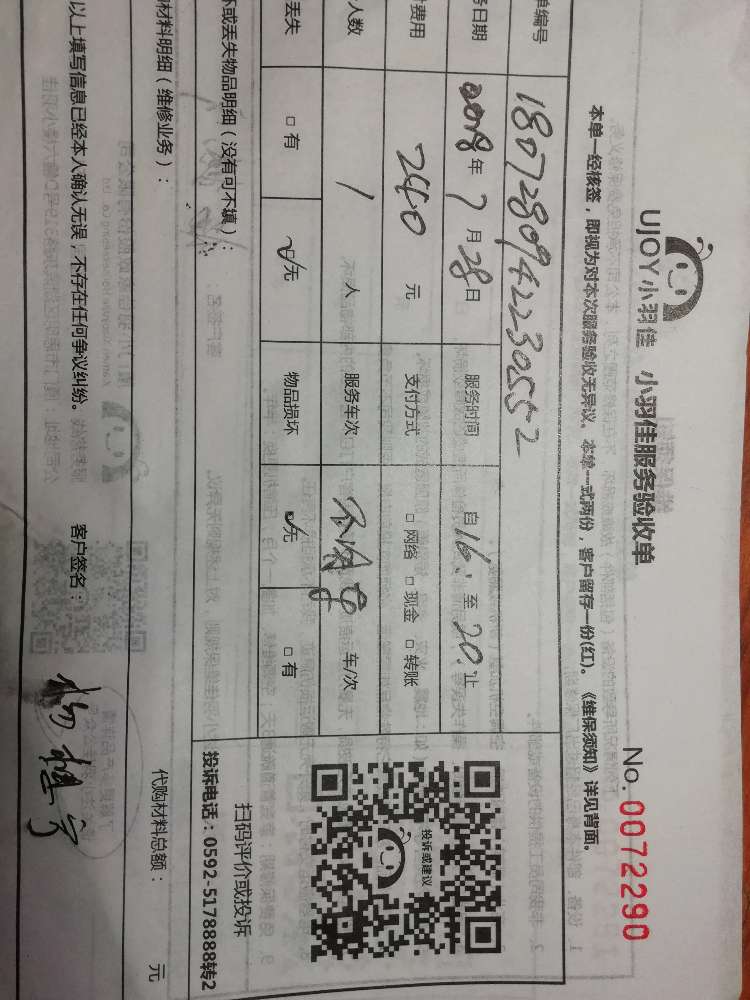 UJOY小羽佳 小羽佳服务验收单
No. 0072290
本单一经核签，即视为对本次服务验收无异议。本单一式两份，客户留存一份(红)。《维保须知》详见背面。
单编号 180728094223055 2
务日期 2018年7月28日 服务时间 自16:至20:止
费用 240元 支付方式 □网络 □现金 □转账
人数 1人 服务车次 车/次
丢失 □有 ☑无 物品损坏 ☑无 □有
坏或丢失物品明细（没有可不填）：
投诉或建议
扫码评价或投诉
投诉电话：0592-5178888转2
材料明细（维修业务）：
代购材料总额： 元
以上填写信息已经本人确认无误，不存在任何争议纠纷。 客户签名：